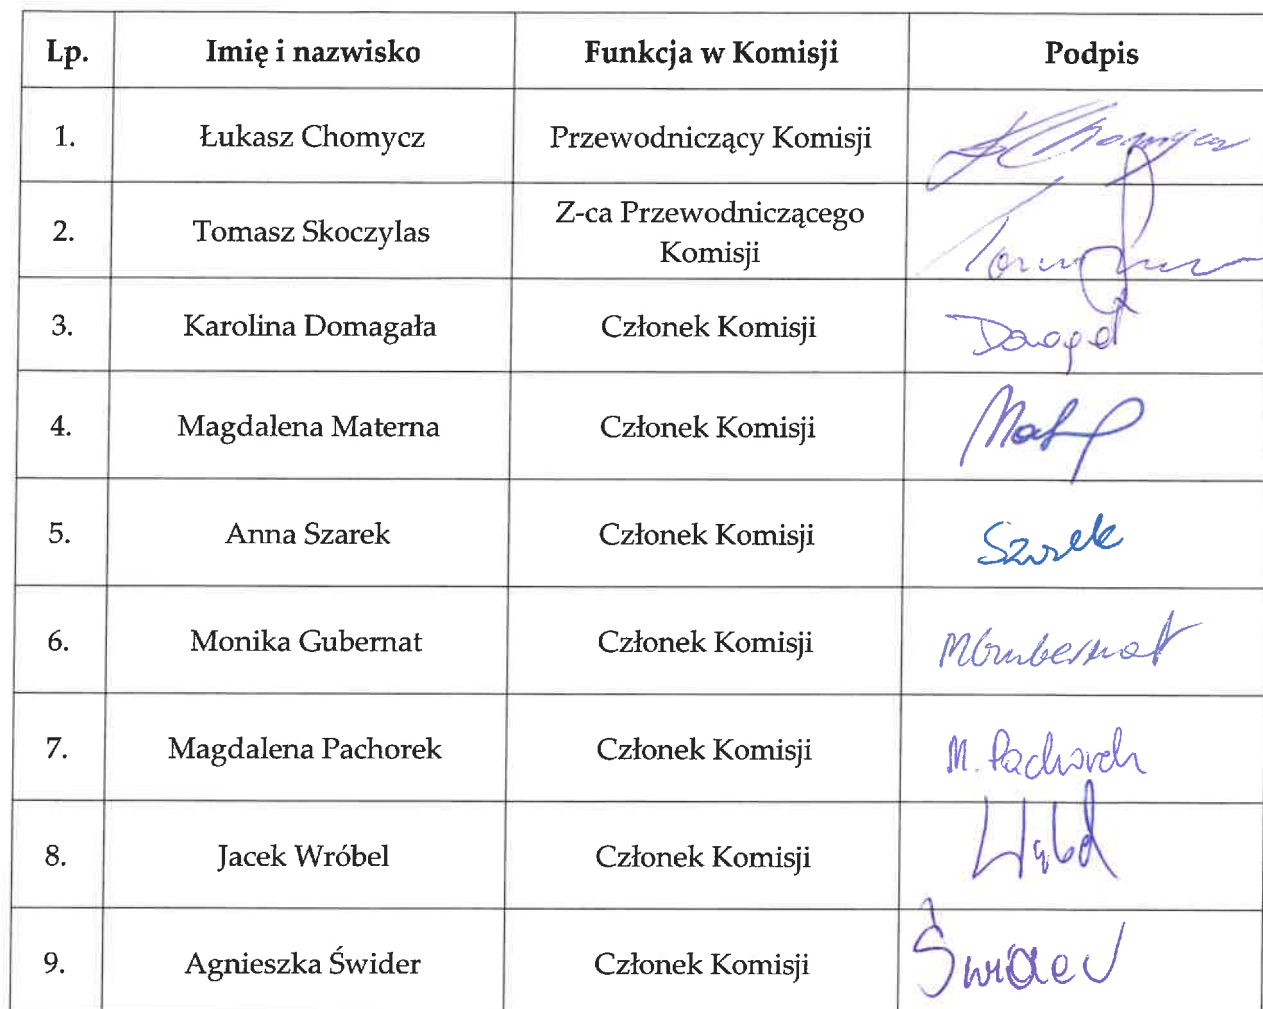 Lp. Imię i nazwisko Funkcja w Komisji Podpis
1. Łukasz Chomycz Przewodniczący Komisji
2. Tomasz Skoczylas Z-ca Przewodniczącego
Komisji
3. Karolina Domagała Członek Komisji
4. Magdalena Materna Członek Komisji
5. Anna Szarek Członek Komisji Szarek
6. Monika Gubernat Członek Komisji MGubernat
7. Magdalena Pachorek Członek Komisji M. Pachorek
8. Jacek Wróbel Członek Komisji
9. Agnieszka Świder Członek Komisji Świder